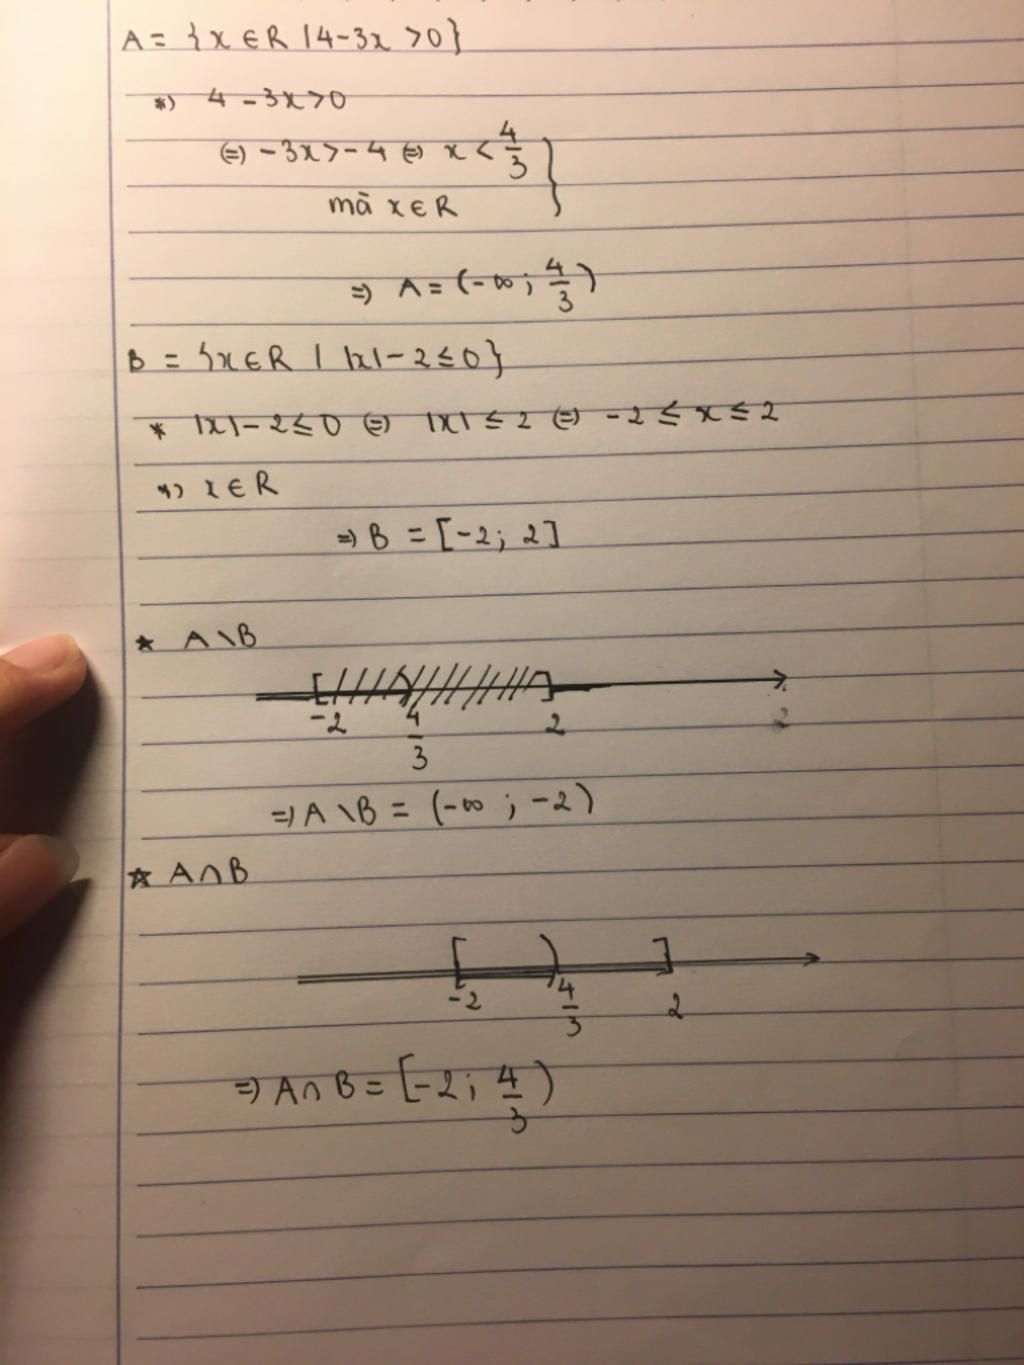 A = {x ∈ R | 4-3x > 0}
*) 4 - 3x > 0
(=) -3x > -4 (=) x < 4/3 }
mà x ∈ R
=) A = (-∞ ; 4/3)
B = {x ∈ R | |x| - 2 ≤ 0}
* |x| - 2 ≤ 0 (=) |x| ≤ 2 (=) -2 ≤ x ≤ 2
*) x ∈ R
=) B = [-2; 2]
* A \ B
[ ) ]
-2 4/3 2
=) A \ B = (-∞ ; -2)
☆ A ∩ B
[ ) ]
-2 4/3 2
=) A ∩ B = [-2 ; 4/3)